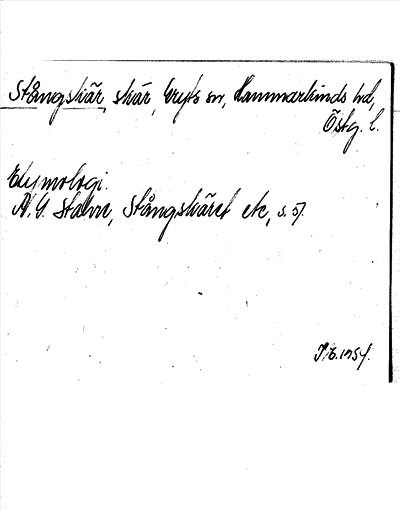 Stångskär, skär, Gryts sn, Hammarkinds hd,
Östg. l.
Etymologi.
N. G. Stahre, Stångskäret etc, s. 57.
1954.